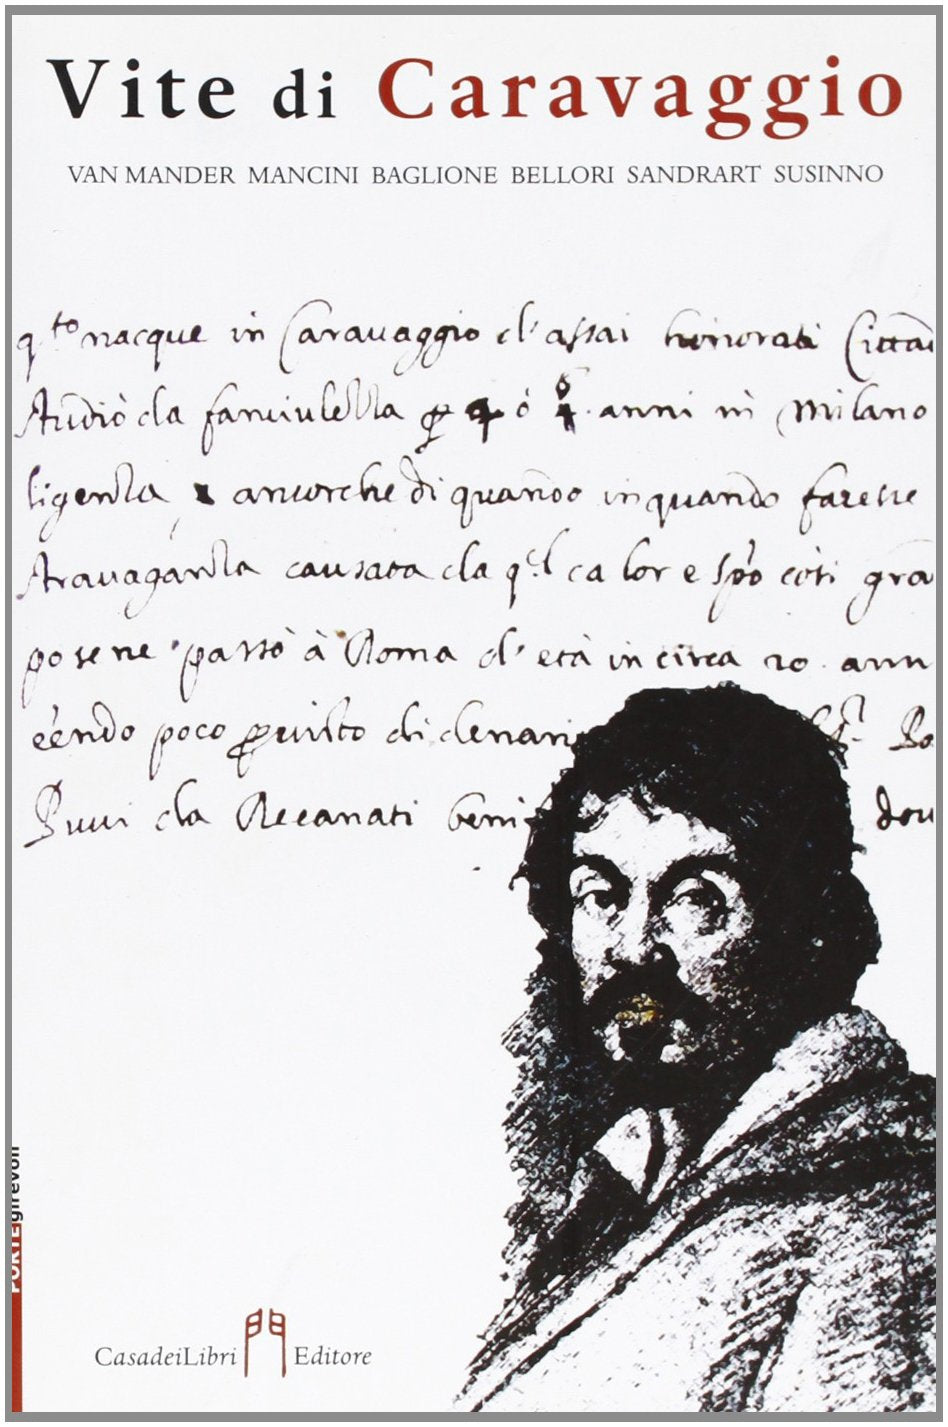 Vite di Caravaggio
VAN MANDER MANCINI BAGLIONE BELLORI SANDRART SUSINNO
q.to nacque in Caravaggio d'assai honorati Cittad
studiò da fanciulezza per 4 ò 6 anni in Milano
ligenza ancorche di quando in quando facesse
stravaganza causata da q.l calor e spto così gra
posene passò à Roma d'età incirca 20 ann
poco di denari
da Recanati beni
PORTEgirevoli
CasadeiLibri Editore